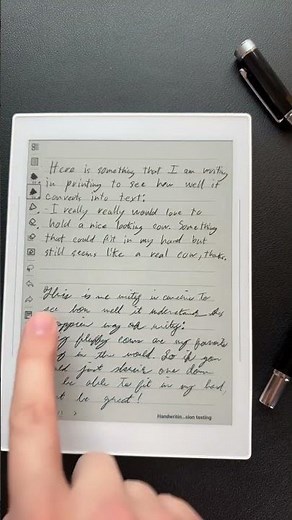 Here is something that I am writing
in printing to see how well it
converts into text:
I really really would love to
hold a nice looking cow. Something
that could fit in my hand but
still seems like a real cow, thanks.
This is me writing in cursive to
see how well it understands this
way of writing:
fluffy cows are my favorite
in this world. So if you
could just shrink one down
be able to fit in my hand,
be great!
Handwritin...sion testing